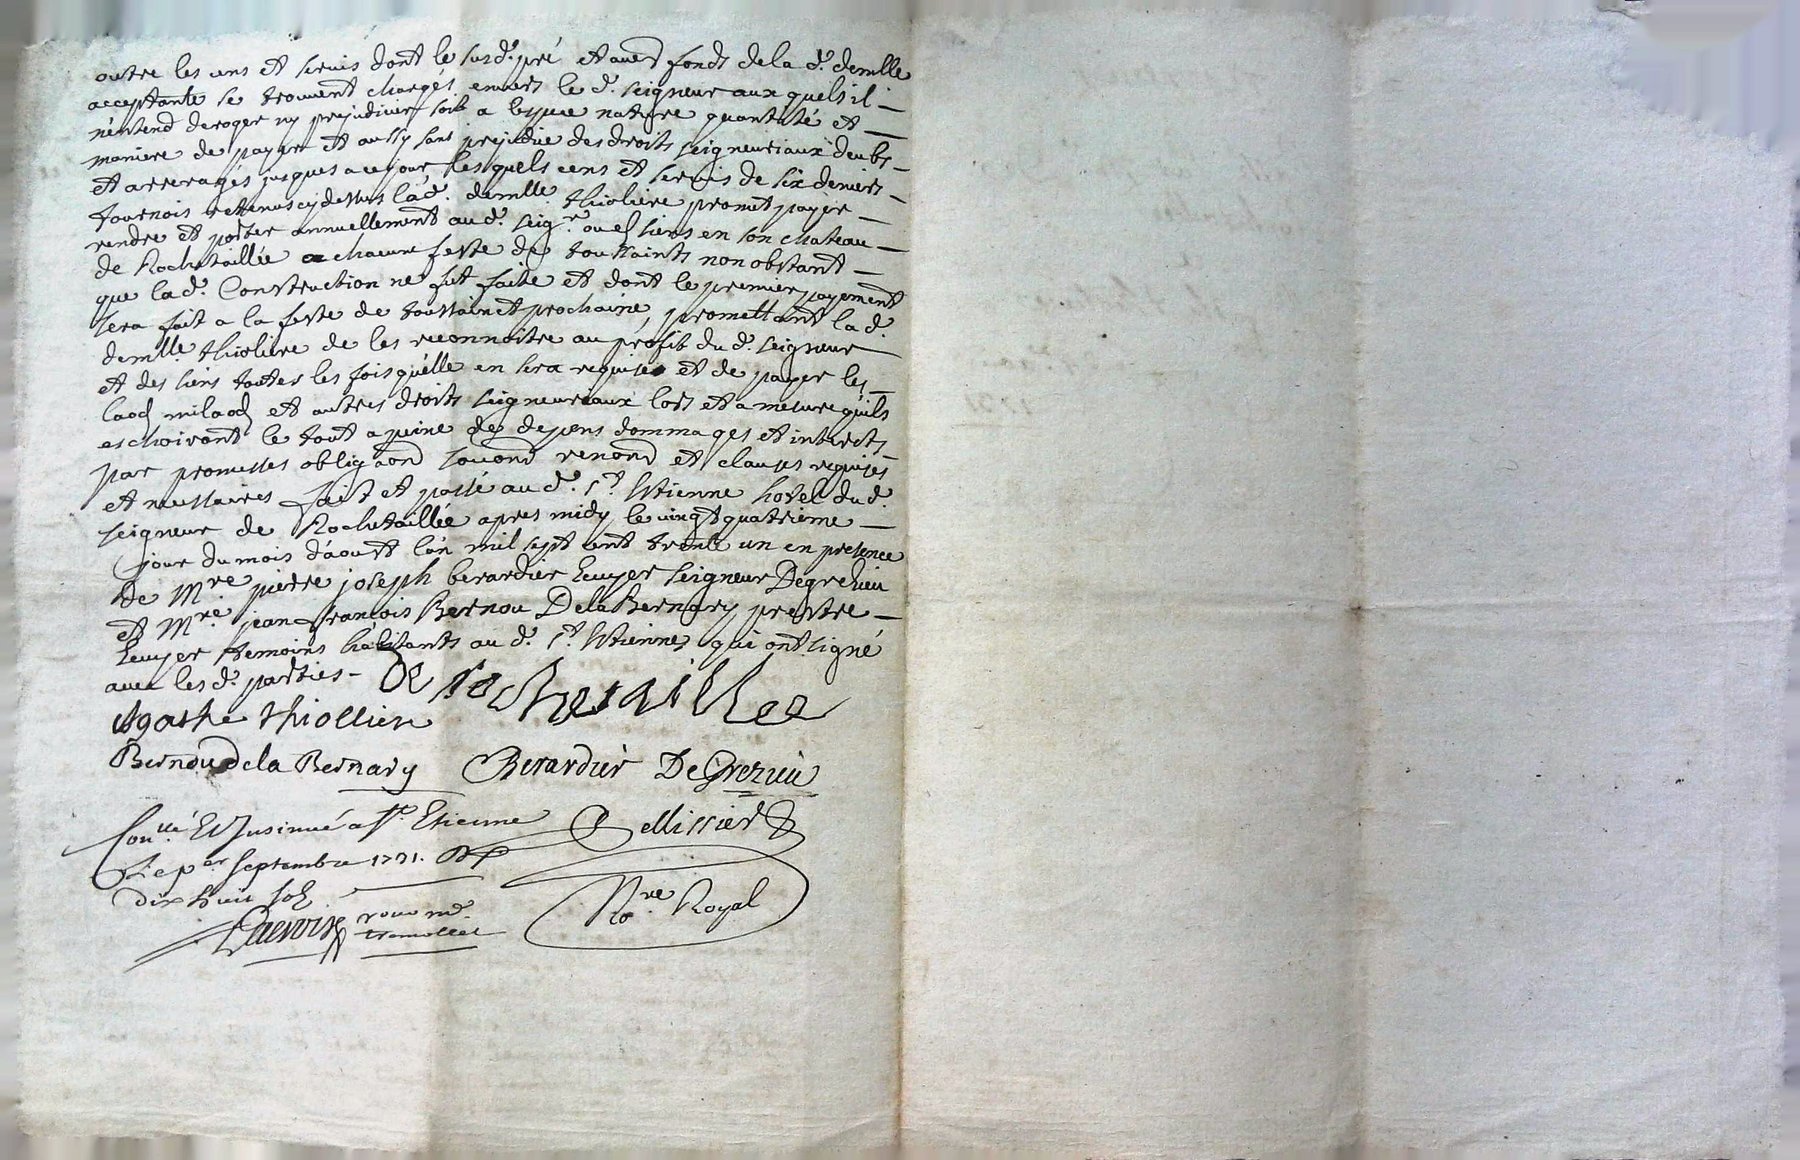 outre les cens et servis dont le susd. pré et autres fonds de la d. demlle
acceptante se trouvent chargés envers le d. seigneur aux quels il
n'entend deroger ny prejudicier soit a lespece nature quantité et
maniere de payer et aussy sans prejudice des droits seigneuriaux deubs
et arreragés jusques a ce jour, lesquels cens et servis de six deniers
tournois retenus cy dessus la d. demlle. thioliere promet payer
rendre et porter annuellement au d. seigr. ou es siens en son chateau
de Rochetaillée a chacune feste des toussaints non obstant
que la d. Construction ne fut faite et dont le premier payement
sera fait a la feste de toussainct prochaine, promettant la d.
demlle thioliere de les reconnoitre au profit du d. seigneur
et des siens toutes les fois qu'elle en sera requise et de payer les
laods milaods et autres droits seigneuriaux lors et a mesure quils
eschoiront le tout a peine de depens dommages et interets
par promesses obligaond renond et clauses requises
et necessaires fait et passé au d. St. Estienne hotel du d.
seigneur de Rochetaillée apres midy le vingt quatrieme
jour du mois d'aoust l'an mil sept cent trente un en presence
de Mre pierre joseph berardier Ecuyer seigneur De grezieu
et Mre. jean francois Bernou De la Bernary prestre
Ecuyer temoins habitants au d. St. Estienne qui ont signé
avec les d. parties - De rochetaillee
Agathe thiolliere
Bernou de la Bernary Berardier De Grezieu
Conllé Et Insinué a St Etienne Pellissier
Le per Septembre 1731.
dix huit sols
Nre. Royal